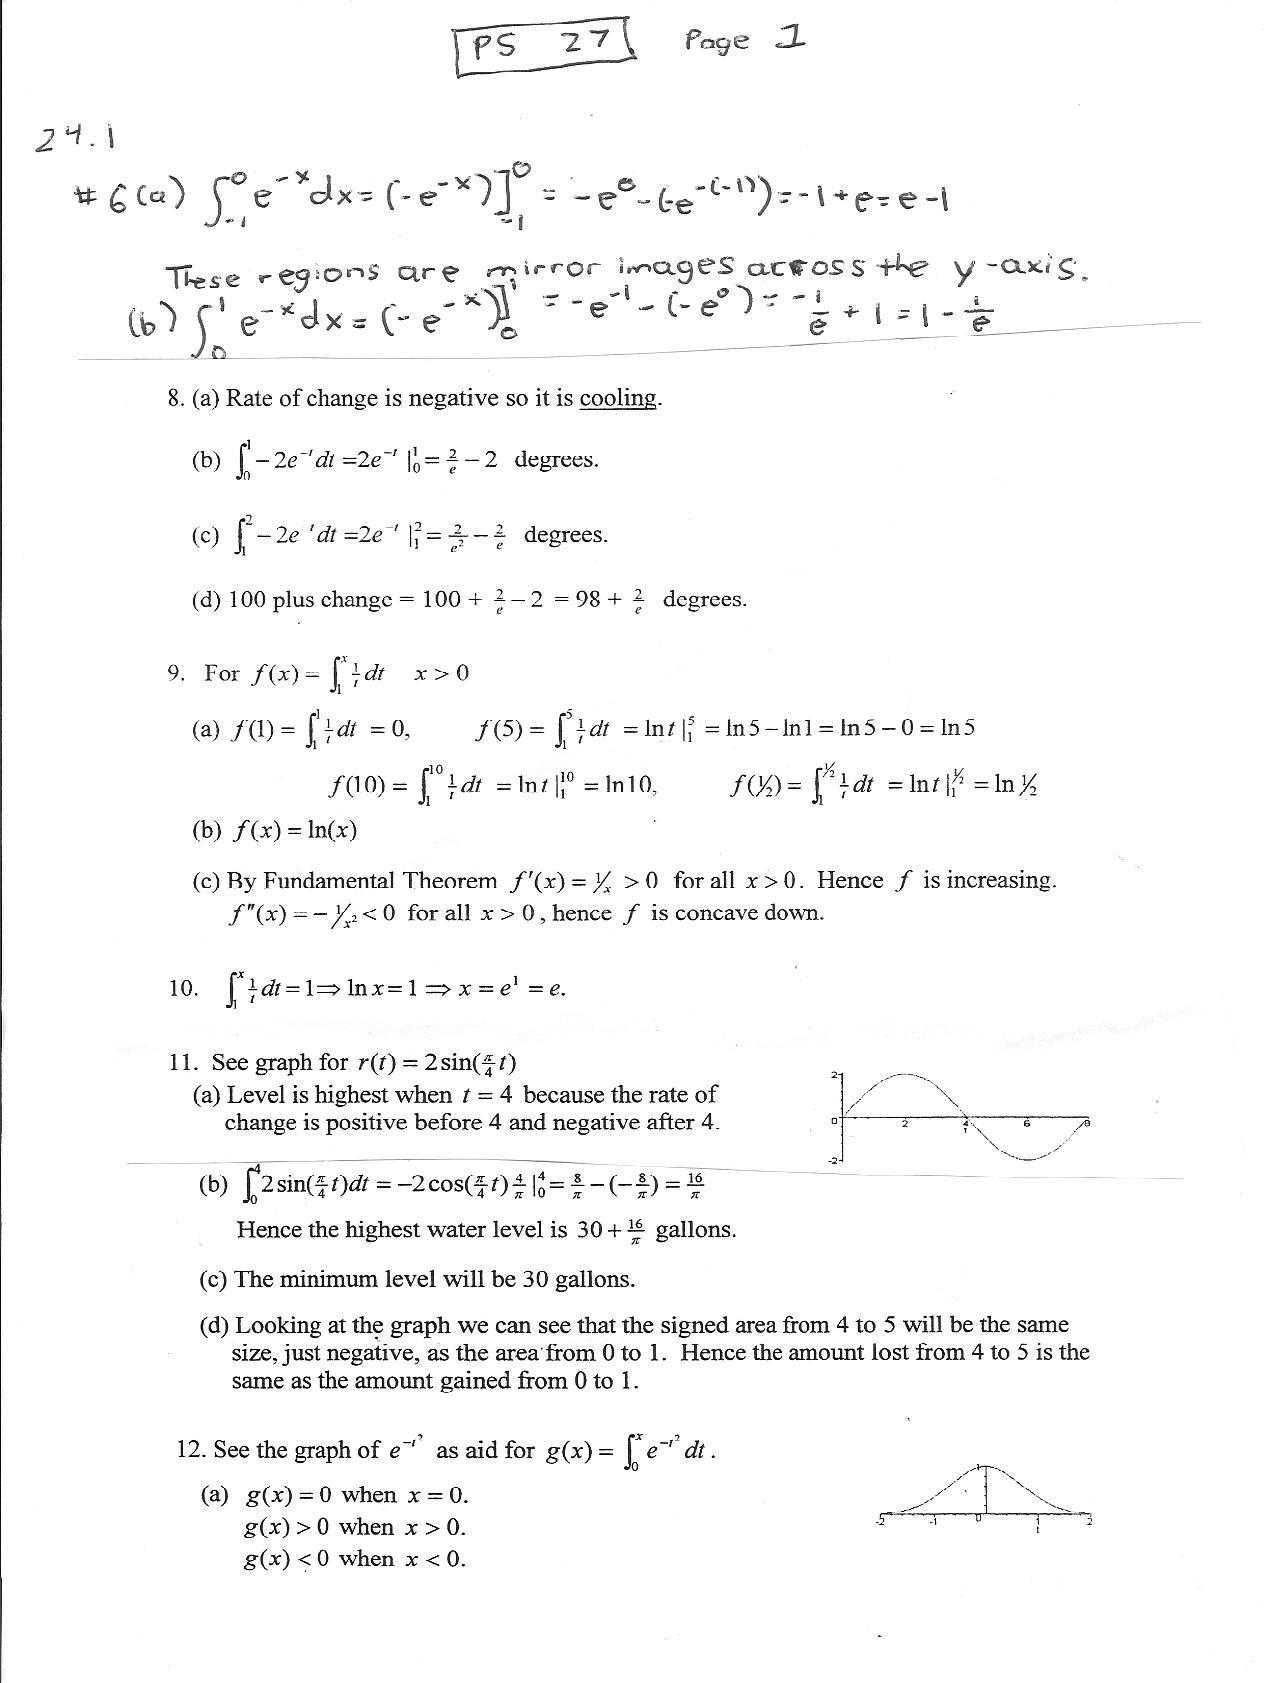 PS 27 Page 1
24.1
#6(a) ∫₋₁⁰ e⁻ˣdx = (-e⁻ˣ)]₋₁⁰ = -e⁰-(-e⁻⁽⁻¹⁾) = -1+e = e-1
These regions are mirror images across the y-axis.
(b) ∫₀¹ e⁻ˣdx = (-e⁻ˣ)]₀¹ = -e⁻¹-(-e⁰) = -1/e + 1 = 1 - 1/e
8. (a) Rate of change is negative so it is cooling.
(b) ∫₀¹ -2e⁻ᵗdt =2e⁻ᵗ |₀¹ = 2/e - 2 degrees.
(c) ∫₁² -2e ᵗdt =2e⁻ᵗ |₁² = 2/e² - 2/e degrees.
(d) 100 plus change = 100 + 2/e - 2 = 98 + 2/e degrees.
9. For f(x) = ∫₁ˣ 1/t dt x > 0
(a) f(1) = ∫₁¹ 1/t dt = 0, f(5) = ∫₁⁵ 1/t dt = ln t |₁⁵ = ln 5 - ln 1 = ln 5 - 0 = ln 5
f(10) = ∫₁¹⁰ 1/t dt = ln t |₁¹⁰ = ln 10, f(½) = ∫₁^½ 1/t dt = ln t |₁^½ = ln ½
(b) f(x) = ln(x)
(c) By Fundamental Theorem f'(x) = 1/x > 0 for all x > 0. Hence f is increasing.
f"(x) = -1/x² < 0 for all x > 0, hence f is concave down.
10. ∫₁ˣ 1/t dt = 1 ⇒ ln x = 1 ⇒ x = e¹ = e.
11. See graph for r(t) = 2 sin(π/4 t)
(a) Level is highest when t = 4 because the rate of
change is positive before 4 and negative after 4.
2
0 2 4 6 8
1
-2
(b) ∫₀⁴ 2 sin(π/4 t)dt = -2 cos(π/4 t) 4/π |₀⁴ = 8/π - (-8/π) = 16/π
Hence the highest water level is 30 + 16/π gallons.
(c) The minimum level will be 30 gallons.
(d) Looking at the graph we can see that the signed area from 4 to 5 will be the same
size, just negative, as the area from 0 to 1. Hence the amount lost from 4 to 5 is the
same as the amount gained from 0 to 1.
12. See the graph of e^(-t²) as aid for g(x) = ∫₀ˣ e^(-t²) dt.
(a) g(x) = 0 when x = 0.
g(x) > 0 when x > 0.
g(x) < 0 when x < 0.
-2 -1 0 1 2
1